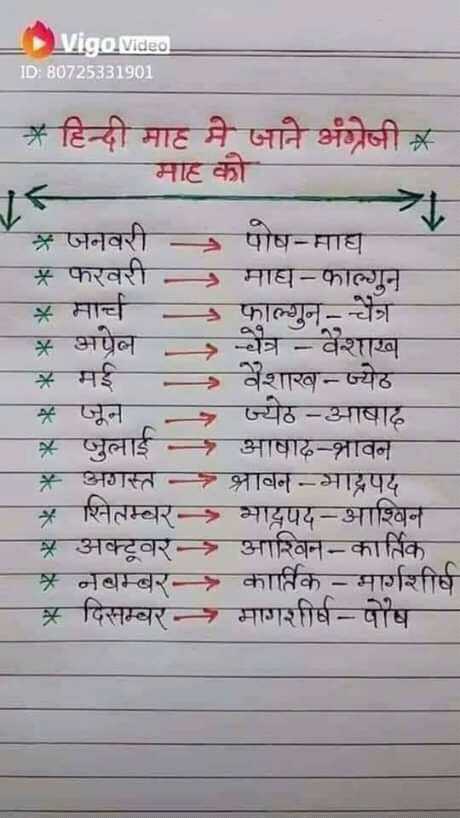 Vigo Video
ID: 80725331901
* हिन्दी माह मे जाने अंग्रेजी *
माह को
* जनवरी → पोष-माघ
* फरवरी → माघ - फाल्गुन
* मार्च → फाल्गुन - चैत्र
* अप्रेल → चैत्र - वैशाख
* मई → वैशाख - ज्येठ
* जून → ज्येठ - आषाढ
* जुलाई → आषाढ-श्रावन
* अगस्त → श्रावन - भाद्रपद
* सितम्बर → भाद्रपद - आश्विन
* अक्टूवर → आश्विन - कार्तिक
* नबम्बर → कार्तिक - मार्गशीर्ष
* दिसम्बर → मागशीर्ष - पौष